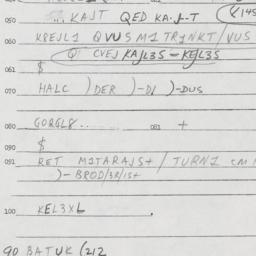 050 ... KAJT QED KA.J-T (K145
060 KREJL1 QVUS M1TR1NKT/VUS
QI CVEJ KAJL3S - KEJL3S
061 $
070 HALC )DER )-DJ )-DUS
080 GORGL8.. 081 +
090 $
091 RET M1TARAJS+ / TURN1 CM
)-BROD/3R/1S+
100 KEL3XL .
90 BATUK (212